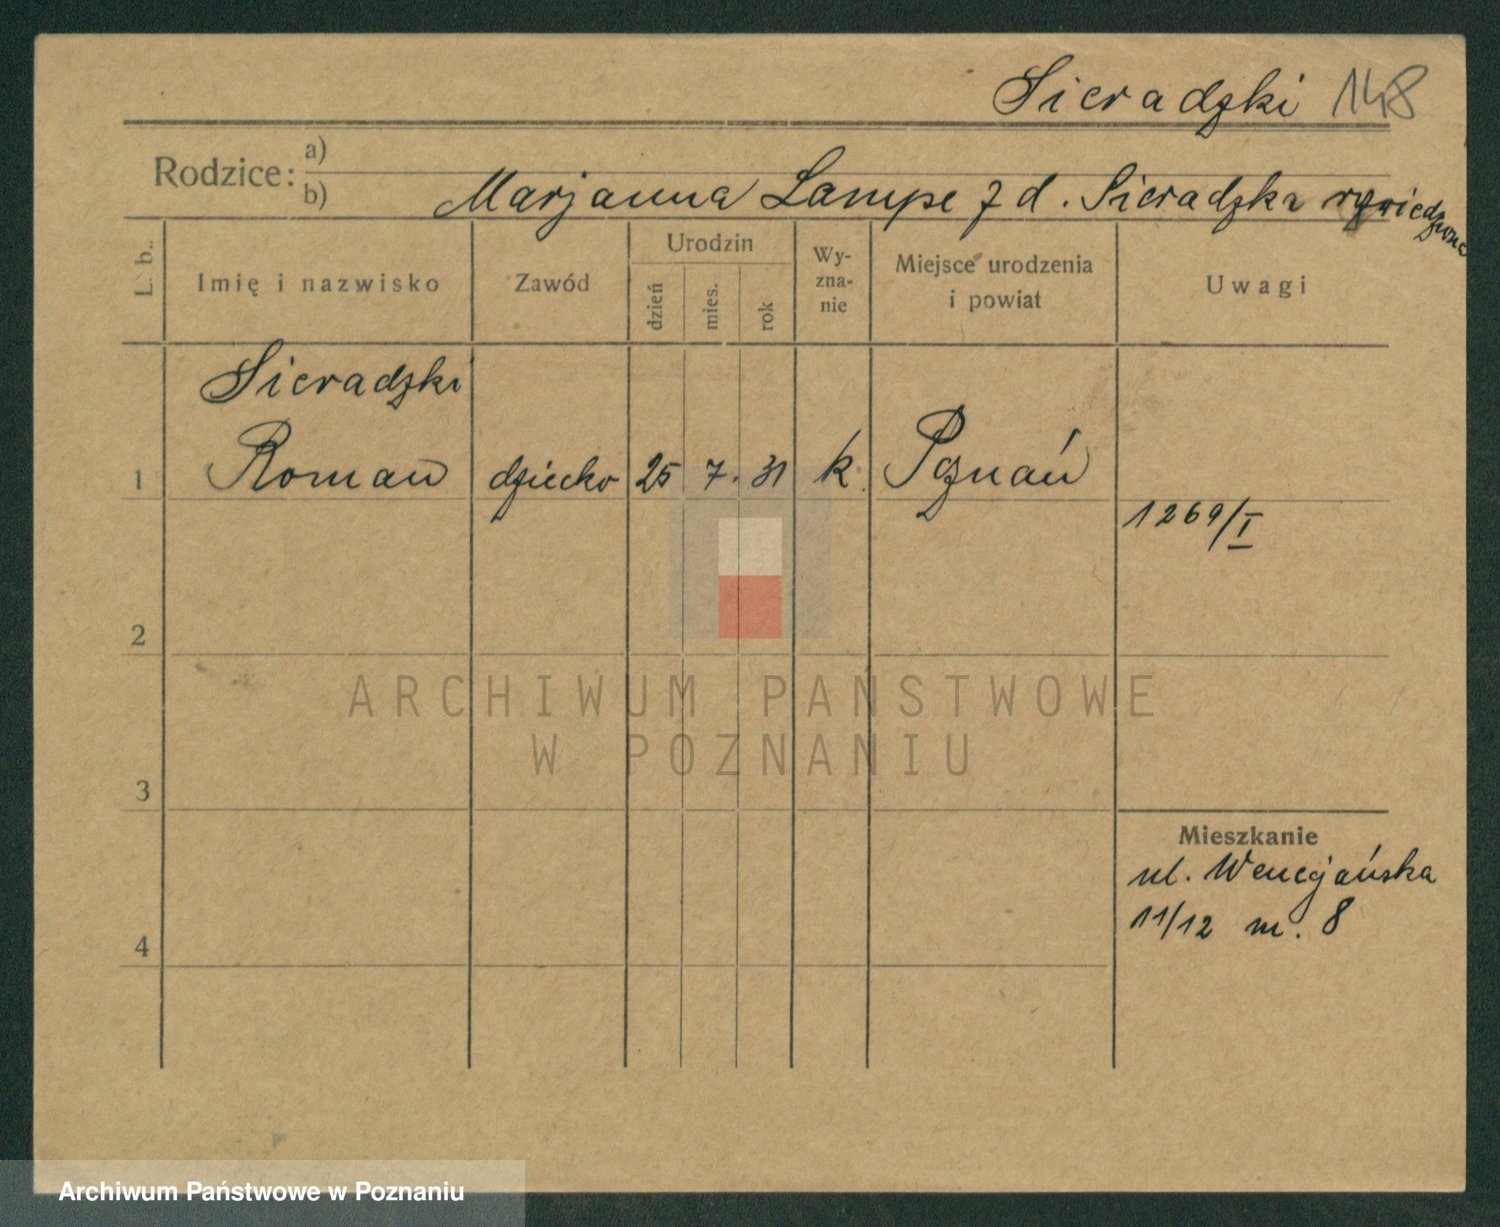 Sieradzki 148
Rodzice: a)
b) Marjanna Lampe z d. Sieradzka
L. b.
Imię i nazwisko
Zawód
Urodzin
dzień
mies.
rok
Wy-
zna-
nie
Miejsce urodzenia
i powiat
Uwagi
Sieradzki
1 Roman dziecko 25 7. 31 k Poznań
1269/I
2
3
4
Mieszkanie
ul. Wenecjańska
11/12 m. 8
ARCHIWUM PAŃSTWOWE
W POZNANIU
Archiwum Państwowe w Poznaniu